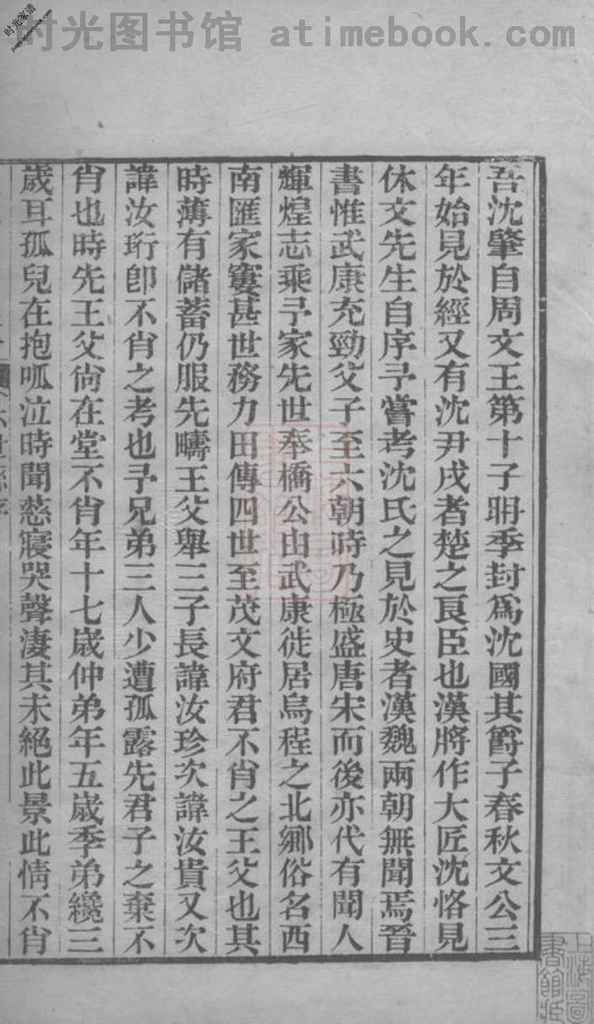 时光图书馆 atimebook.com
吾沈肇自周文王第十子聃季封爲沈國其爵子春秋文公三
年始見於經又有沈尹戌者楚之良臣也漢將作大匠沈恪見
休文先生自序予嘗考沈氏之見於史者漢魏兩朝無聞焉晉
書惟武康充勁父子至六朝時乃極盛唐宋而後亦代有聞人
輝煌志乘予家先世奉橋公由武康徙居烏程之北鄉俗名西
南匯家寠甚世務力田傳四世至茂文府君不肖之王父也其
時薄有儲蓄仍服先疇王父舉三子長諱汝珍次諱汝貴又次
諱汝珩卽不肖之考也予兄弟三人少遭孤露先君子之棄不
肖也時先王父尙在堂不肖年十七歲仲弟年五歲季弟纔三
歲耳孤兒在抱呱泣時聞慈寢哭聲淒其未絕此景此情不肖
上海圖
書館藏